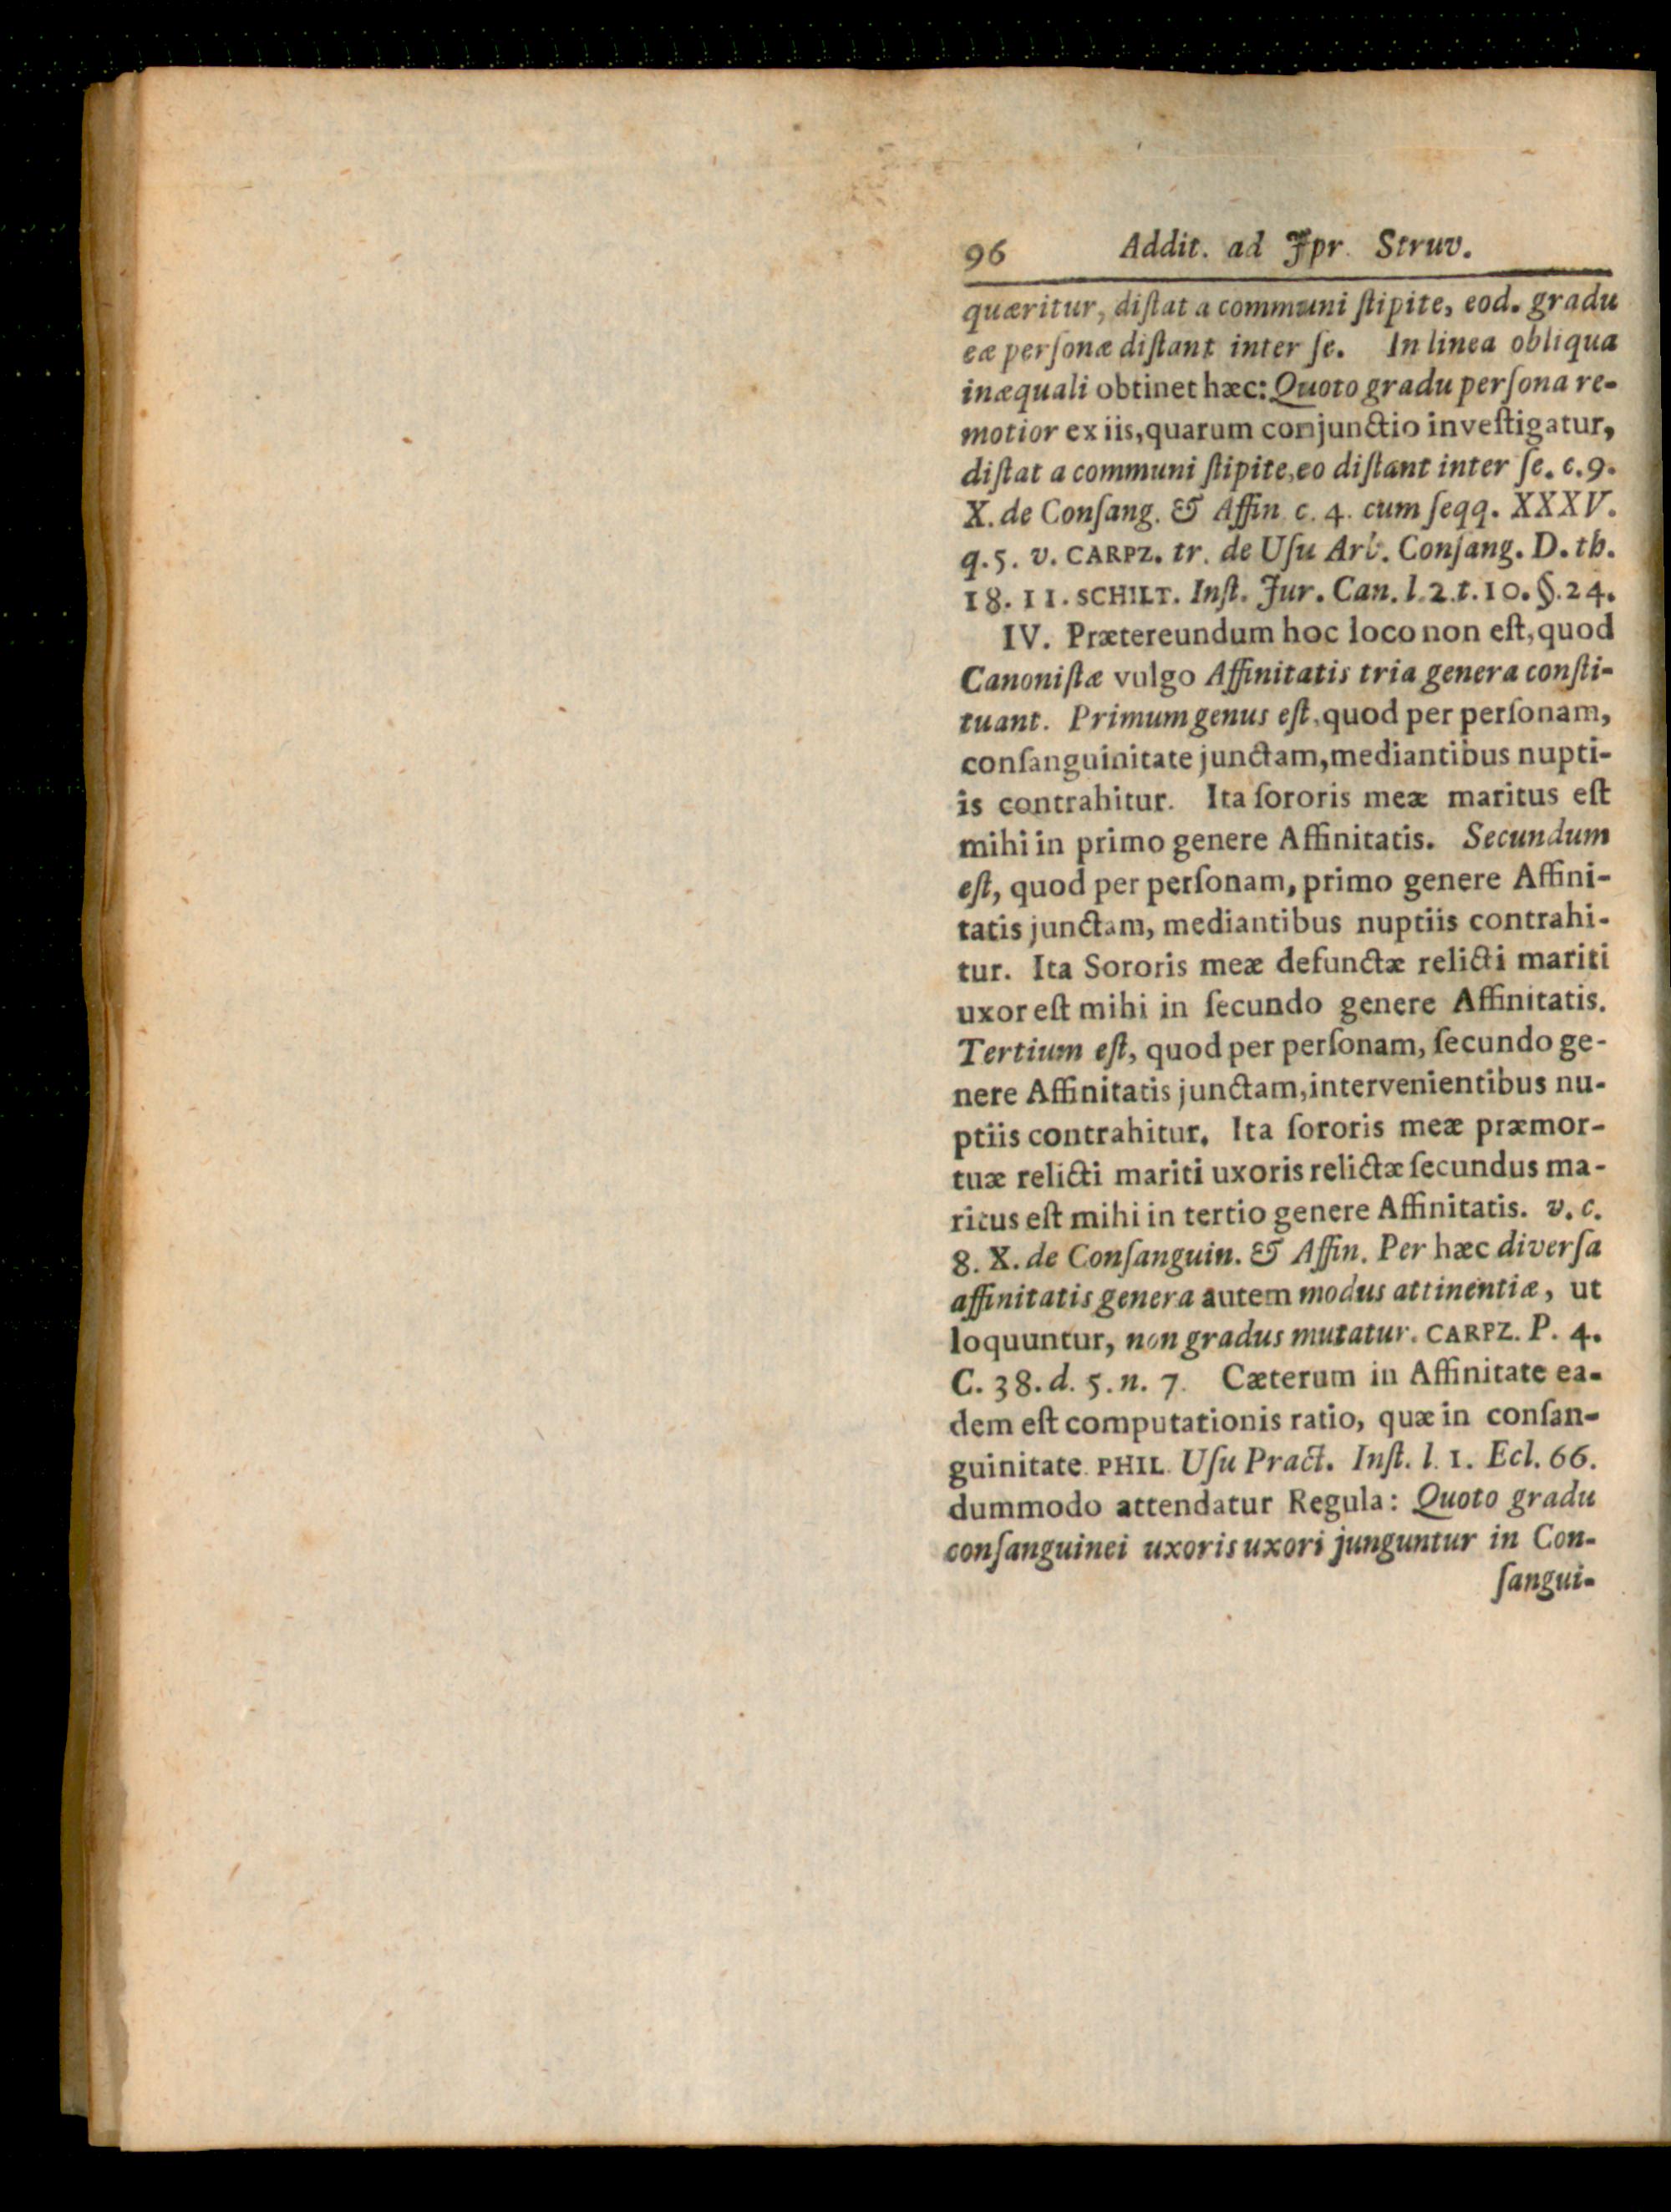 96 Addit. ad Jpr. Struv.
quæritur, diſtat a communi ſtipite, eod. gradu
eæ perſonæ diſtant inter ſe. In linea obliqua
inæquali obtinet hæc: Quoto gradu perſona re-
motior ex iis, quarum conjunctio inveſtigatur,
diſtat a communi ſtipite, eo diſtant inter ſe. c. 9.
X. de Conſang. & Affin. c. 4. cum ſeqq. XXXV.
q. 5. v. CARPZ. tr. de Uſu Arb. Conſang. D. th.
18. 11. SCHILT. Inſt. Jur. Can. l. 2. t. 10. §. 24.
IV. Prætereundum hoc loco non eſt, quod
Canoniſtæ vulgo Affinitatis tria genera conſti-
tuant. Primum genus eſt, quod per perſonam,
conſanguinitate junctam, mediantibus nupti-
is contrahitur. Ita ſororis meæ maritus eſt
mihi in primo genere Affinitatis. Secundum
eſt, quod per perſonam, primo genere Affini-
tatis junctam, mediantibus nuptiis contrahi-
tur. Ita Sororis meæ defunctæ relicti mariti
uxor eſt mihi in ſecundo genere Affinitatis.
Tertium eſt, quod per perſonam, ſecundo ge-
nere Affinitatis junctam, intervenientibus nu-
ptiis contrahitur. Ita ſororis meæ præmor-
tuæ relicti mariti uxoris relictæ ſecundus ma-
ritus eſt mihi in tertio genere Affinitatis. v. c.
8. X. de Conſanguin. & Affin. Per hæc diverſa
affinitatis genera autem modus attinentiæ, ut
loquuntur, non gradus mutatur. CARPZ. P. 4.
C. 38. d. 5. n. 7. Cæterum in Affinitate ea-
dem eſt computationis ratio, quæ in conſan-
guinitate. PHIL. Uſu Pract. Inſt. l. 1. Ecl. 66.
dummodo attendatur Regula: Quoto gradu
conſanguinei uxoris uxori junguntur in Con-
ſangui-